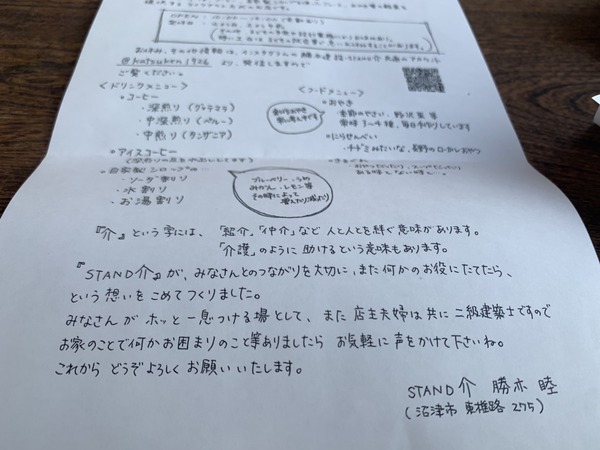 おやすみ、その他情報は、インスタグラムの
@katsukon_1926 より、発信しますので
ご覧ください。
<ドリンクメニュー>
・コーヒー
・深煎り(グァテマラ)
・中深煎り(ペルー)
・中煎り(タンザニア)
・アイスコーヒー
・自家製シロップの
・ソーダ割り
・水割り
・お湯割り
ブルーベリー・うめ
みかん・レモン等
その時によって
<フードメニュー>
・おやき
季節のやさい、野沢菜等
常時3~4種、毎日手作りしています
・にらせんべい
チヂミみたいな、長野のローカルおやつ
『介』という字には、「紹介」「仲介」など人と人とを繋ぐ意味があります。
「介護」のように助けるという意味もあります。
『STAND介』が、みなさんとのつながりを大切に、また何かのお役にたてたら、
という想いをこめてつくりました。
みなさんがホッと一息つける場として、また店主夫婦は共に二級建築士ですので
お家のことで何かお困りまりのこと等ありましたら お気軽に声をかけて下さいね。
これから どうぞよろしくお願いいたします。
STAND介 勝木 睦
(沼津市 東椎路 275)